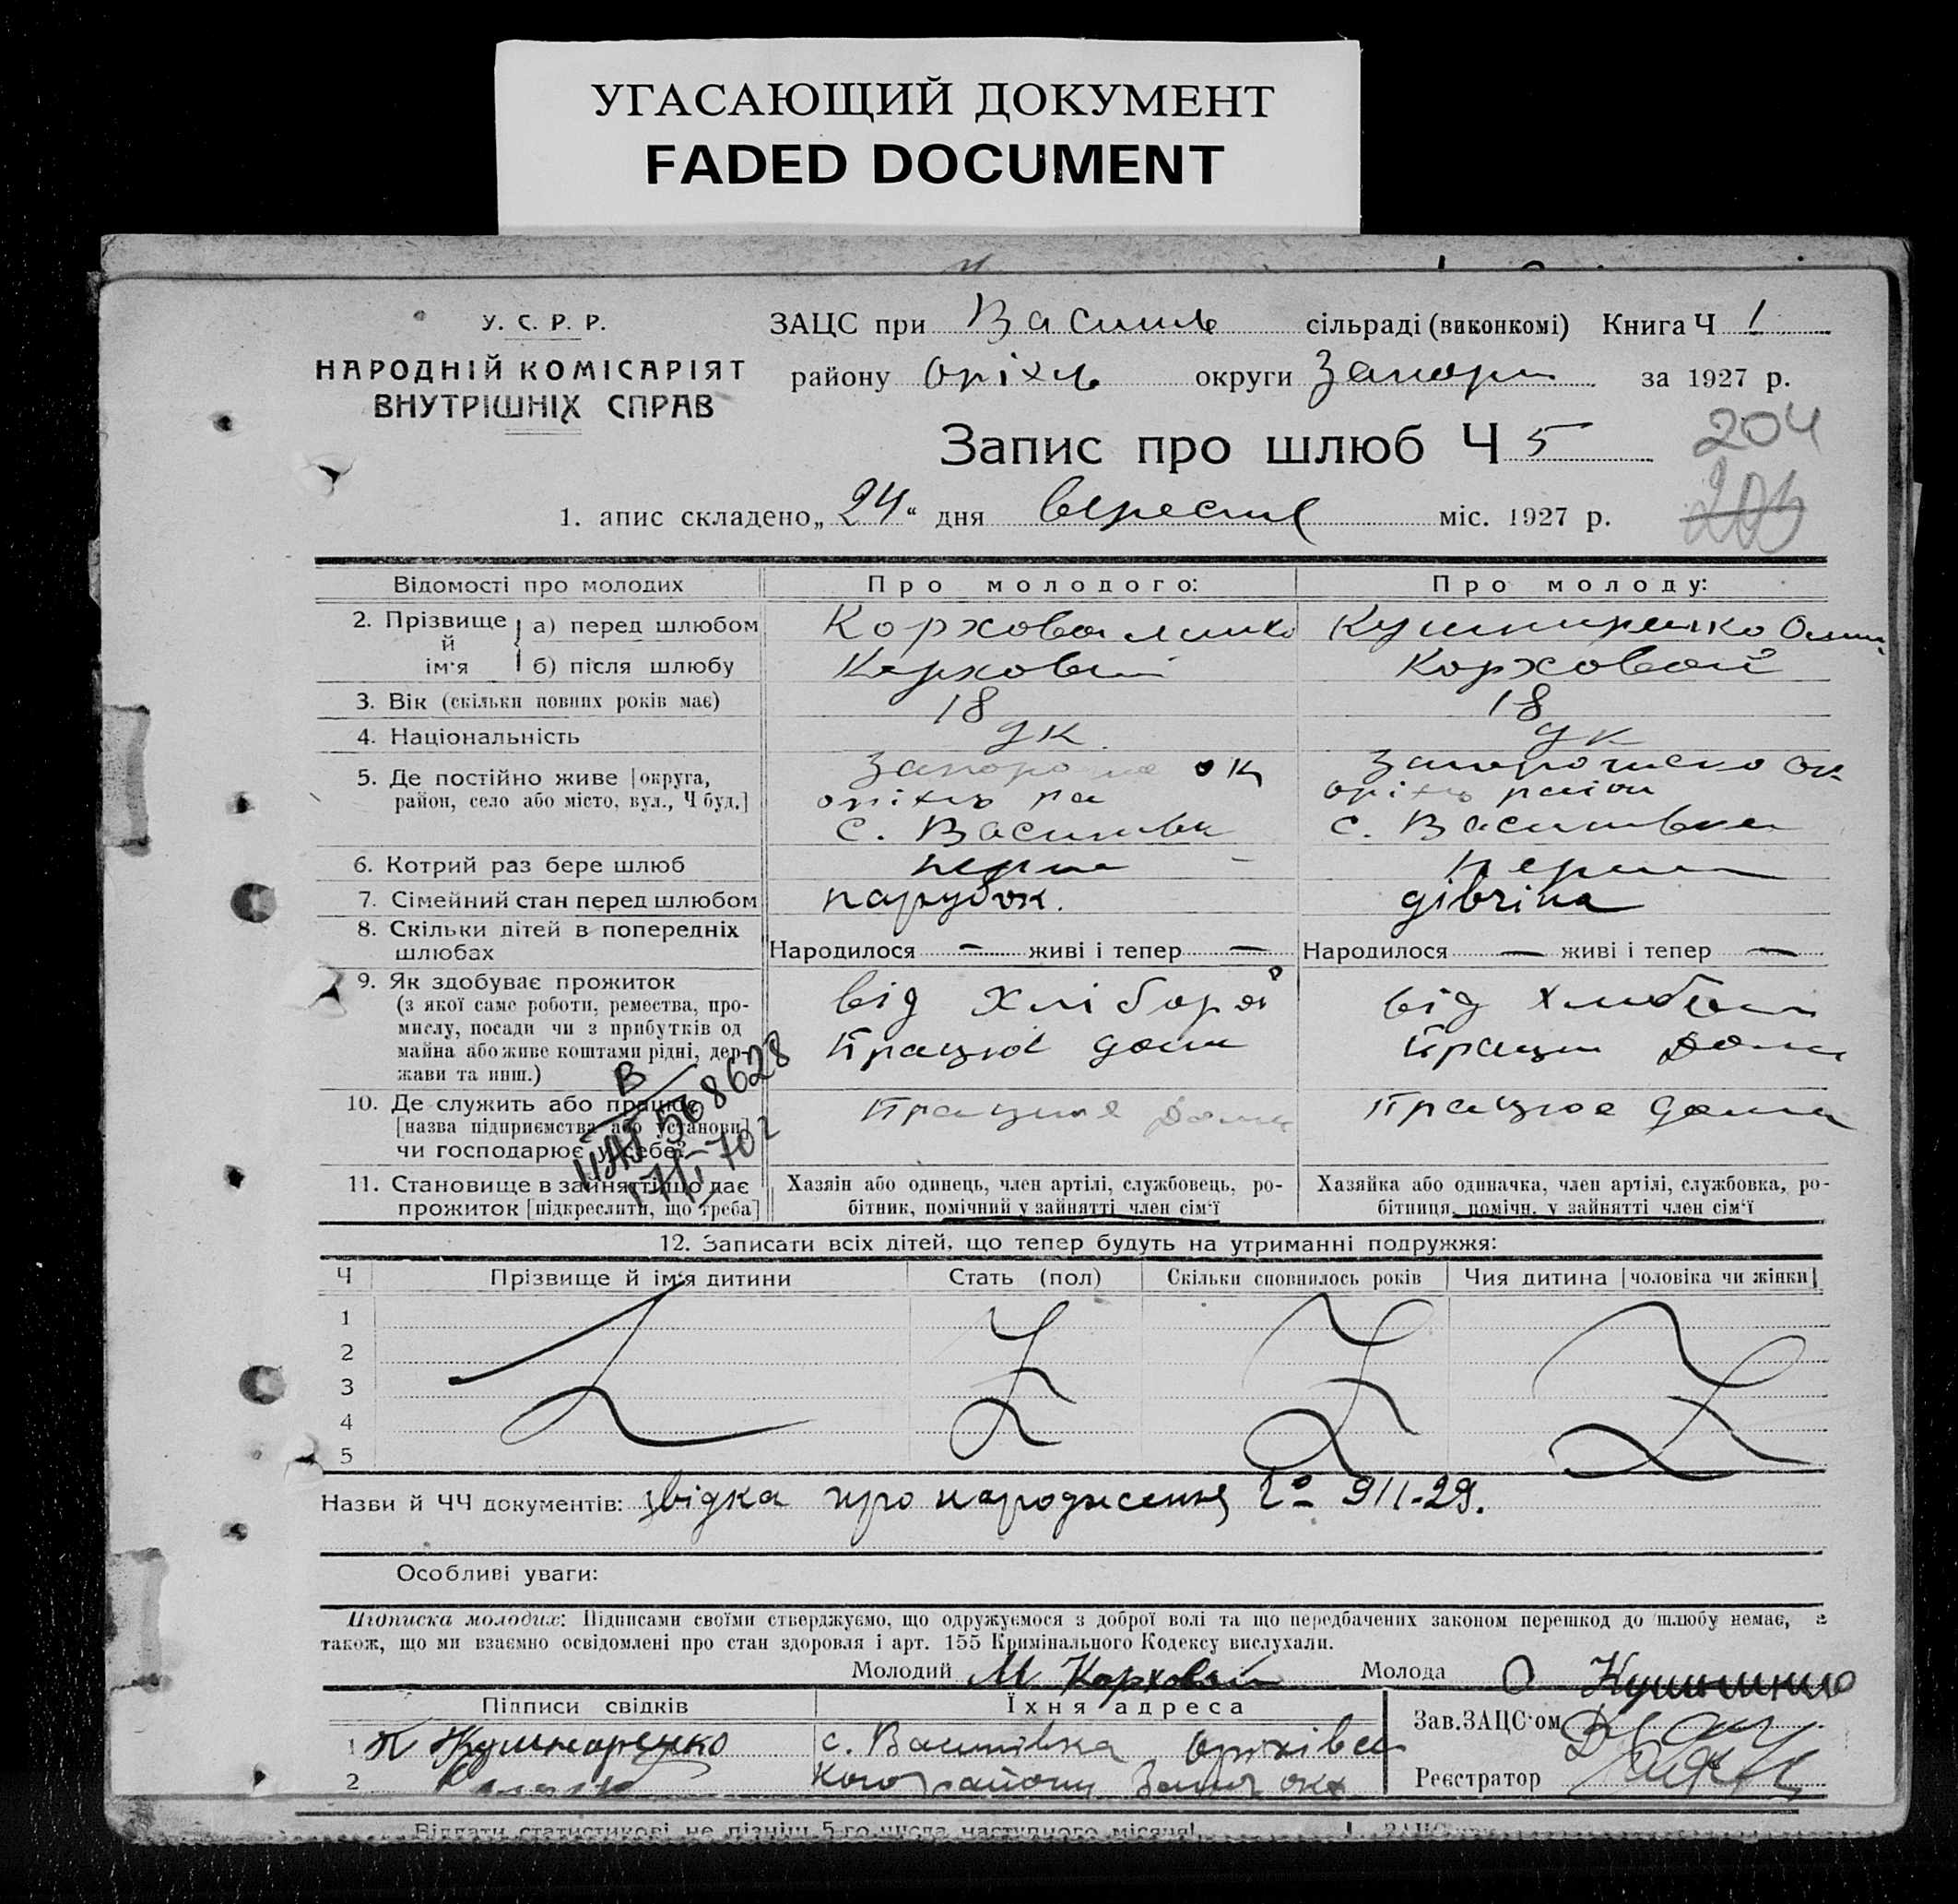 УГАСАЮЩИЙ ДОКУМЕНТ
FADED DOCUMENT
У. С. Р. Р.
НАРОДНІЙ КОМІСАРІЯТ
ВНУТРІШНІХ СПРАВ
ЗАЦС при Василь сільраді (виконкомі) Книга Ч 1
району Оріхів округи Запоріж за 1927 р.
Запис про шлюб Ч 5
204
1. апис складено „24“ дня вересня міс. 1927 р.
Відомості про молодих
Про молодого:
Про молоду:
2. Прізвище й ім'я
а) перед шлюбом
Коржовай
Кушниренко
б) після шлюбу
Коржовай
Коржовай
3. Вік (скільки повних років має)
18
18
4. Національність
ук
ук
5. Де постійно живе [округа, район, село або місто, вул., Ч буд.]
ок
с. Василівка
ок
район
с. Василівка
6. Котрий раз бере шлюб
перше
перше
7. Сімейний стан перед шлюбом
парубок.
дівчина
8. Скільки дітей в попередніх шлюбах
Народилося — живі і тепер —
Народилося — живі і тепер —
9. Як здобуває прожиток
(з якої саме роботи, ремества, промислу, посади чи з прибутків од майна або живе коштами рідні, держави та инш.)
від
Працює дома
від
дома
10. Де служить або працює
[назва підприємства або установи]
чи господарює у себе?
Працює дома
Працює дома
11. Становище в зайнятті що дає
прожиток [підкреслити, що треба]
Хазяін або одинець, член артілі, службовець, робітник, помічний у зайнятті член сім'ї
Хазяйка або одиначка, член артілі, службовка, робітниця, помічн. у зайнятті член сім'ї
12. Записати всіх дітей, що тепер будуть на утриманні подружжя:
Ч
Прізвище й ім'я дитини
Стать (пол)
Скільки сповнилось років
Чия дитина [чоловіка чи жінки]
1
2
3
4
5
Назви й ЧЧ документів: звідка про народження 911-29.
Особливі уваги:
Підписка молодих: Підписами своїми стверджуємо, що одружуємося з доброї волі та що передбачених законом перешкод до шлюбу немає, а
також, що ми взаємно освідомлені про стан здоровля і арт. 155 Кримінального Кодексу вислухали.
Молодий М Коржовай
Молода О
Підписи свідків
Їхня адреса
Зав. ЗАЦС'ом
1 Кушнаренко
с. Василівка
2
району
Реєстратор
Віддати статистикові не пізніш 5-го числа наступного місяця!